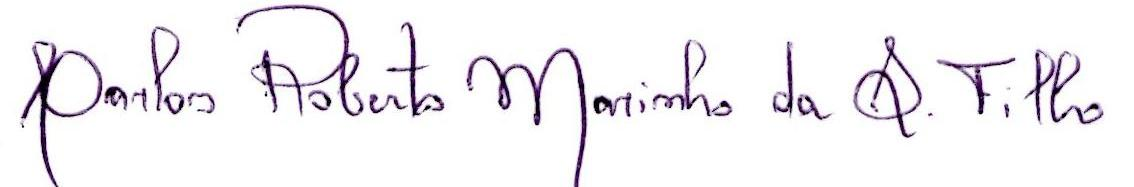 Carlos Roberto Marinho da S. Filho